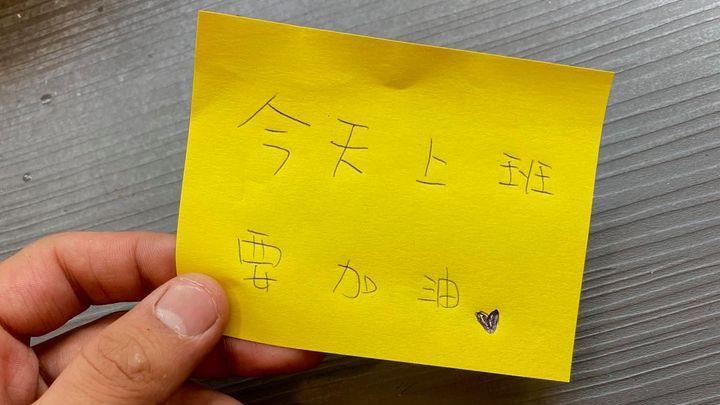 今天上班
要加油